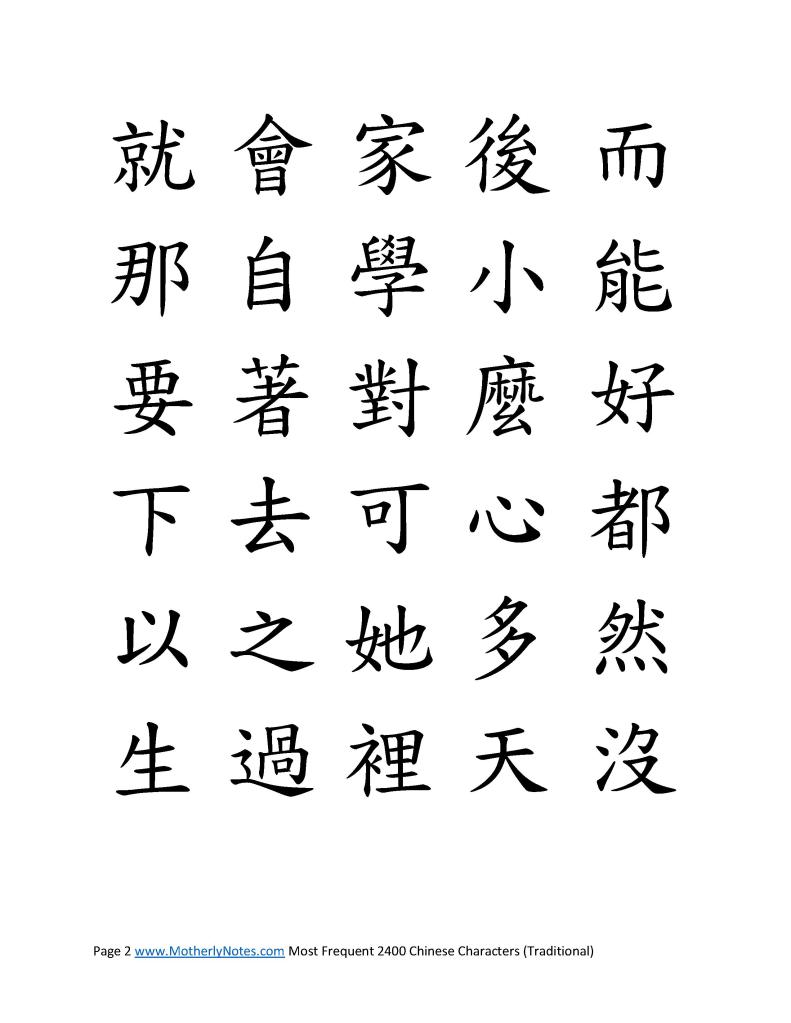 就 會 家 後 而
那 自 學 小 能
要 著 對 麼 好
下 去 可 心 都
以 之 她 多 然
生 過 裡 天 沒
Page 2 www.MotherlyNotes.com Most Frequent 2400 Chinese Characters (Traditional)